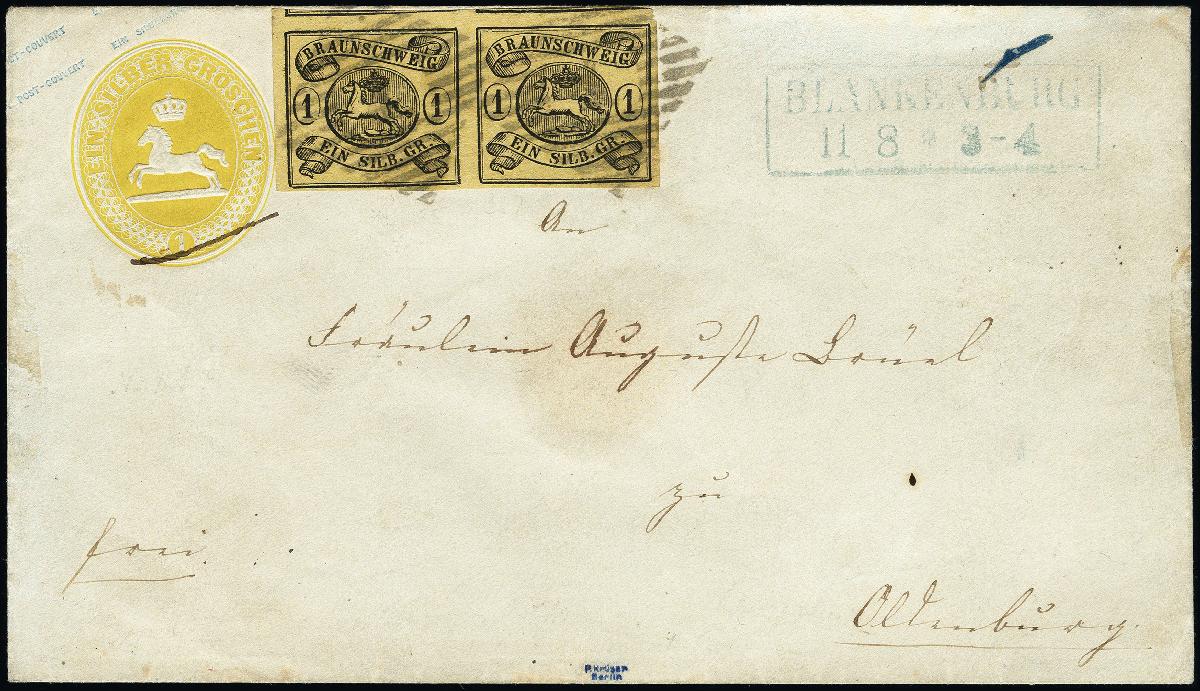 POST-COUVERT EIN SILBER
POST-COUVERT
EIN SILBER GROSCHEN
1
BRAUNSCHWEIG
1 1
EIN SILB. GR.
BRAUNSCHWEIG
1 1
EIN SILB. GR.
BLANKENBURG
11 8 * 3-4
An
Fräulein Auguste Brüel
zu
frei
Oldenburg.
Berlin